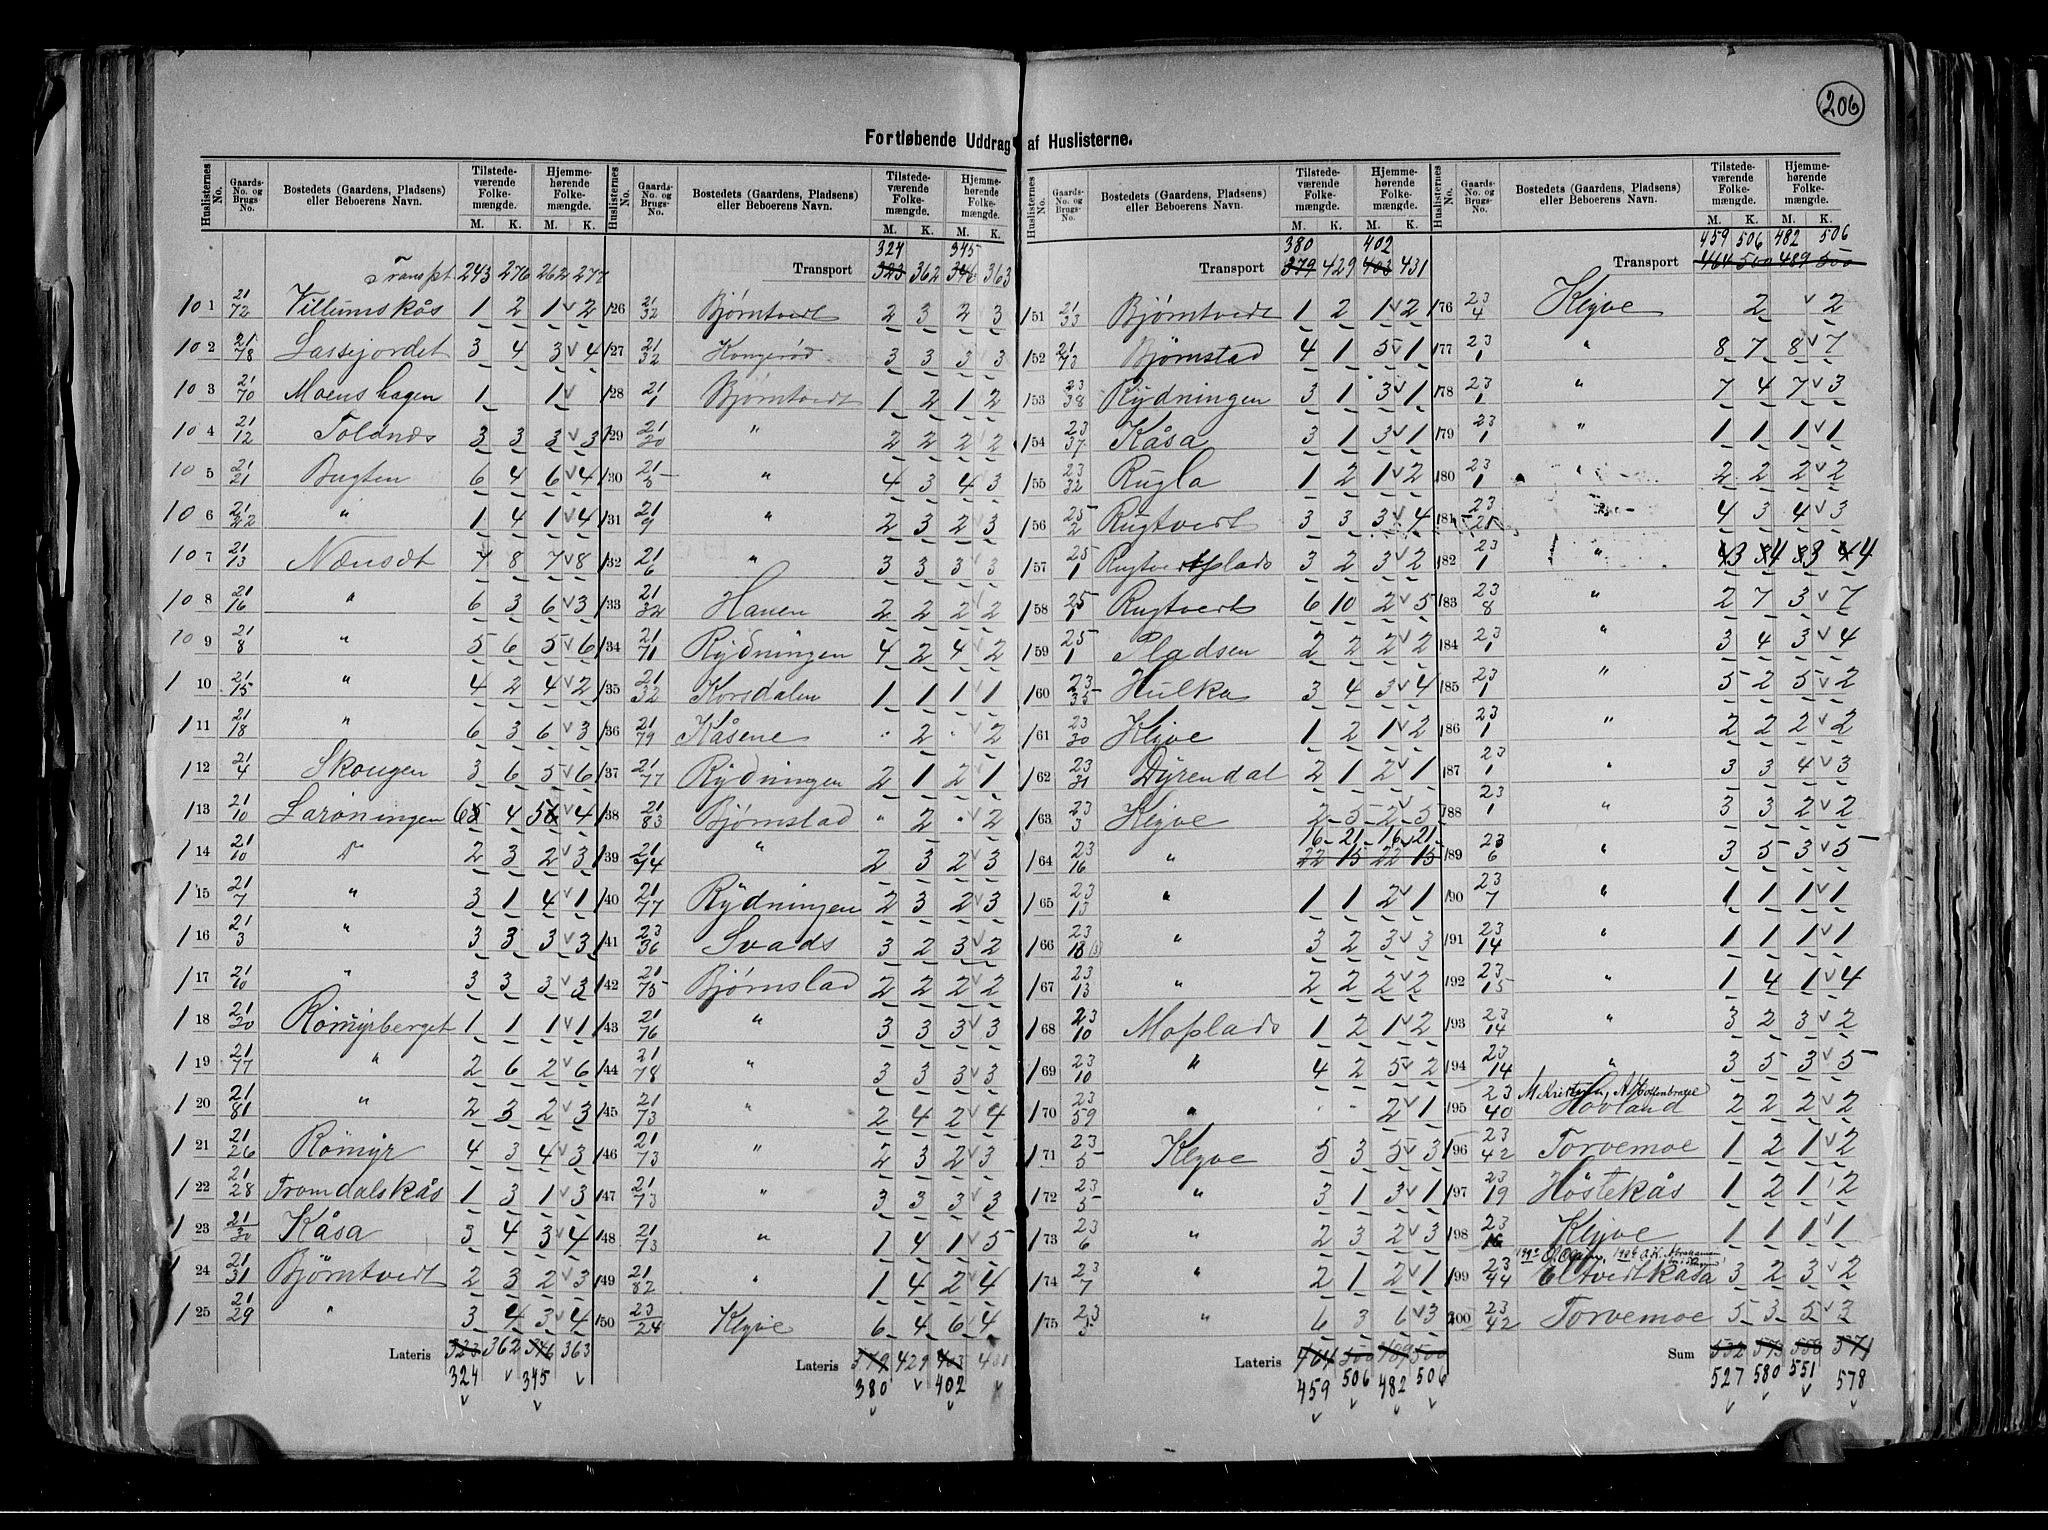 206
Fortløbende Uddrag af Huslisterne.
Huslisternes No. Gaards-No. og Brugs-No. Bostedets (Gaardens, Pladsens) eller Beboerens Navn. Tilstedeværende Folkemængde. M. K. Hjemmehørende Folkemængde. M. K.
Transpt. 243 276 262 277
101 21/72 Villumskås 1 2 1 v 2
102 21/78 Lassejordet 3 4 3 v 4
103 21/70 Moenshagen 1 1 v
104 21/12 3 3 3 v 3
105 21/21 Bugten 6 4 6 v 4
106 21/22 " 1 4 1 v 4
107 21/13 7 8 7 v 8
108 21/16 " 6 3 6 v 3
109 21/8 " 5 6 5 v 6
110 21/15 " 4 2 4 v 2
111 21/18 " 6 3 6 v 3
112 21/4 Skougen 3 6 5 v 6
113 21/10 6 4 5 v 4
114 21/10 2 3 2 v 3
115 21/7 " 3 1 4 v 1
116 21/3 " 3 3 3 v 3
117 21/10 " 3 3 3 v 3
118 21/20 Römyrberget 1 1 1 v 1
119 21/77 " 2 6 2 v 6
120 21/81 " 2 3 2 v 3
121 21/26 Römyr 4 3 4 v 3
122 21/28 Tromdalskås 1 3 1 v 3
123 21/30 Kåsa 3 4 3 v 4
124 21/31 Bjørntvedt 2 3 2 v 3
125 21/29 " 3 4 3 v 4
Lateris 323 362 346 363
324 v 345 v
Huslisternes No. Gaards-No. og Brugs-No. Bostedets (Gaardens, Pladsens) eller Beboerens Navn. Tilstedeværende Folkemængde. M. K. Hjemmehørende Folkemængde. M. K.
324 345
Transport 323 362 346 363
126 21/32 Bjørntvedt 2 3 2 3
127 21/32 Kongerød 3 3 3 3
128 21/1 Bjørntvedt 1 2 1 2
129 21/20 " 2 2 2 2
130 21/5 " 4 3 4 3
131 21/9 " 2 3 2 3
132 21/6 " 3 3 3 3
133 21/32 Hauen 2 2 2 2
134 21/71 Rydningen 4 2 4 2
135 21/32 Korsdalen 1 1 1 1
136 21/79 Kåsene . 2 . 2
137 21/77 Rydningen 2 1 2 1
138 21/83 Bjørnstad " 2 " 2
139 21/74 " 2 3 2 3
140 21/77 Rydningen 2 3 2 3
141 23/36 Svads 3 2 3 2
142 21/75 Bjørnstad 2 2 2 2
143 21/76 " 3 3 3 3
144 21/78 " 3 3 3 3
145 21/73 " 2 4 2 4
146 21/73 " 2 3 2 3
147 21/73 " 3 3 3 3
148 21/73 " 1 4 1 5
149 21/82 " 1 4 2 4
150 23/24 Klyve 6 4 6 4
Lateris 379 429 403 431
380 v 402 v
Huslisternes No. Gaards-No. og Brugs-No. Bostedets (Gaardens, Pladsens) eller Beboerens Navn. Tilstedeværende Folkemængde. M. K. Hjemmehørende Folkemængde. M. K.
380 402
Transport 379 429 403 431
151 21/33 Bjørntvedt 1 2 1 v 2
152 21/73 Bjørnstad 4 1 5 v 1
153 23/38 Rydningen 3 1 3 v 1
154 23/37 Kåsa 3 1 3 v 1
155 23/32 Rugla 1 2 1 v 2
156 25/2 Rugtvedt 3 3 3 v 4
157 25/1 Rugtvedtplads 3 2 3 v 2
158 25/1 Rugtvedt 6 10 2 v 5
159 25/1 Pladsen 2 2 2 v 2
160 23/35 Hulka 3 4 3 v 4
161 23/30 Klyve 1 2 1 v 2
162 23/31 Dyrendal 2 1 2 v 1
163 23/3 Klyve 2 5 2 v 5
16 21 16 v 21
164 23/16 " 22 15 22 15
165 23/13 " 1 1 2 v 1
166 23/18(3) " 3 2 3 v 3
167 23/13 " 2 2 2 v 2
168 23/10 Moplads 1 2 1 v 2
169 23/10 " 4 2 5 v 2
170 23/59 " . . 2 v 1
171 23/5 Klyve 5 3 5 v 3
172 23/5 " 3 1 3 v 1
173 23/6 " 2 3 2 v 3
174 23/7 " 2 1 2 v 1
175 23/5 " 6 3 6 v 3
Lateris 464 500 489 500
459 506 482 506
Huslisternes No. Gaards-No. og Brugs-No. Bostedets (Gaardens, Pladsens) eller Beboerens Navn. Tilstedeværende Folkemængde. M. K. Hjemmehørende Folkemængde. M. K.
459 506 482 506
Transport 464 500 489 500
176 23/4 Klyve 2 v 2
177 23/1 " 8 7 8 v 7
178 23/1 " 7 4 7 v 3
179 23/1 " 1 1 1 v 1
180 23/1 " 2 2 2 v 2
181 23/21 4 3 4 v 3
182 23/1 " 3 4 3 4
183 23/8 " 2 7 3 v 7
184 23/1 " 3 4 3 v 4
185 23/1 " 5 2 5 v 2
186 23/1 " 2 2 2 v 2
187 23/1 " 3 3 4 v 3
188 23/1 " 3 3 2 v 2
189 23/6 " 3 5 3 v 5
190 23/7 " 1 1 1 v 1
191 23/14 " 1 1 1 v 1
192 23/15 " 1 4 1 v 4
193 23/14 " 3 2 3 v 2
194 23/14 " 3 5 3 v 5
195 23/40 Hovland 2 2 2 v 2
196 23/42 Torvemoe 1 2 1 v 2
197 23/19 Höstekås 1 2 1 2
198 23/16 Klyve 1 1 1 v 1
199 23/44 Eltvedtkåsa 3 2 3 v 2
200 23/42 Torvemoe 5 3 5 v 3
Sum 532 573 558 571
527 580 551 578